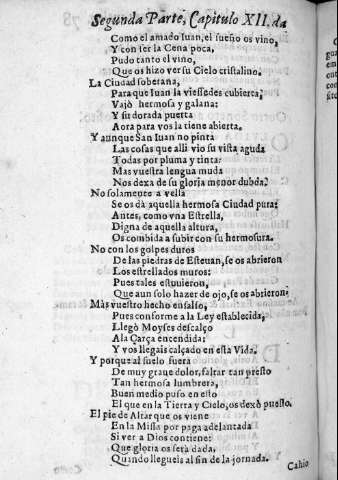 Segunda Parte, Capitulo XII. da
Como el amado Iuan, el sueño os vino,
Y con ser la Cena poca,
Pudo tanto el vino,
Que os hizo ver su Cielo cristalino.
La Ciudad soberana,
Para que Iuan la viessedes cubierta,
Vajò hermosa y galana:
Y su dorada puerta
Aora para vos la tiene abierta.
Y aunque San Iuan no pinta
Las cosas que alli vio su vista aguda
Todas por pluma y tinta:
Mas vuestra lengua muda
Nos dexa de su gloria menor dubda.
No solamente a vella
Se os dà aquella hermosa Ciudad pura:
Antes, como vna Estrella,
Digna de aquella altura,
Os combida a subir con su hermosura.
No con los golpes duros
De las piedras de Esteuan, se os abrieron
Los estrellados muros:
Pues tales estuuieron,
Que aun solo hazer de ojo, se os abrieron:
Màs vuestro hecho ensalse,
Pues conforme a la Ley establecida,
Llegò Moyses descalço
A la Çarça encendida:
Y vos llegais calçado en esta Vida.
Y porque al suelo fuera
De muy graue dolor, faltar tan presto
Tan hermosa lumbrera,
Buen medio puso en esto
El que en la Tierra y Cielo, os dexò puesto.
El pie de Altar que os viene
En la Missa por paga adelantada
Si ver a Dios contiene:
Que gloria os serà dada,
Quando llegueis al fin de la jornada.
Cahio